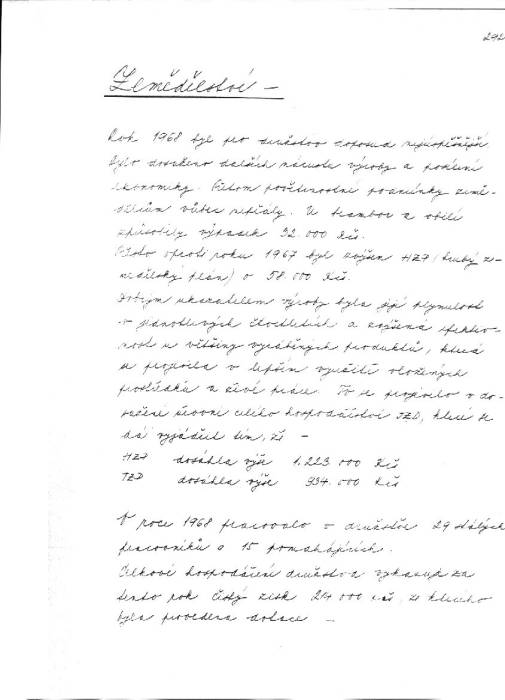 292
Zemědělství –
Rok 1968 byl pro družstvo doposud nejúspěšnější
bylo dosaženo dalších nárustu výroby a posílení
ekonomiky. Přitom povětrnostní podmínky země-
dělcům vůbec nepřály. U brambor a obilí
způsobily výpadek 92 000 Kčs.
Přesto oproti roku 1967 byl zvýšen HZP (hrubý ze-
mědělský plán) o 58.000 Kčs.
Dobrým ukazatelem výroby byla její plynulost
v jednotlivých čtvrtletích a zvýšená efektiv-
nost u většiny vyráběných produktů, která
se projevila v lepším využití vložených
prostředků a živé práce. To se projevilo v do-
sažení úrovní celého hospodářství JZD, které se
dá vyjádřit tím, že –
HZP dosáhla výše 1.223 000 Kčs
TZP dosáhla výše 934.000 Kčs
V roce 1968 pracovalo v družstvu 29 stálých
pracovníků a 15 pomáhajících.
Celkové hospodaření družstva vykazuje za
tento rok čistý zisk 24 000 Kčs, ze kterého
byla provedena dotace –